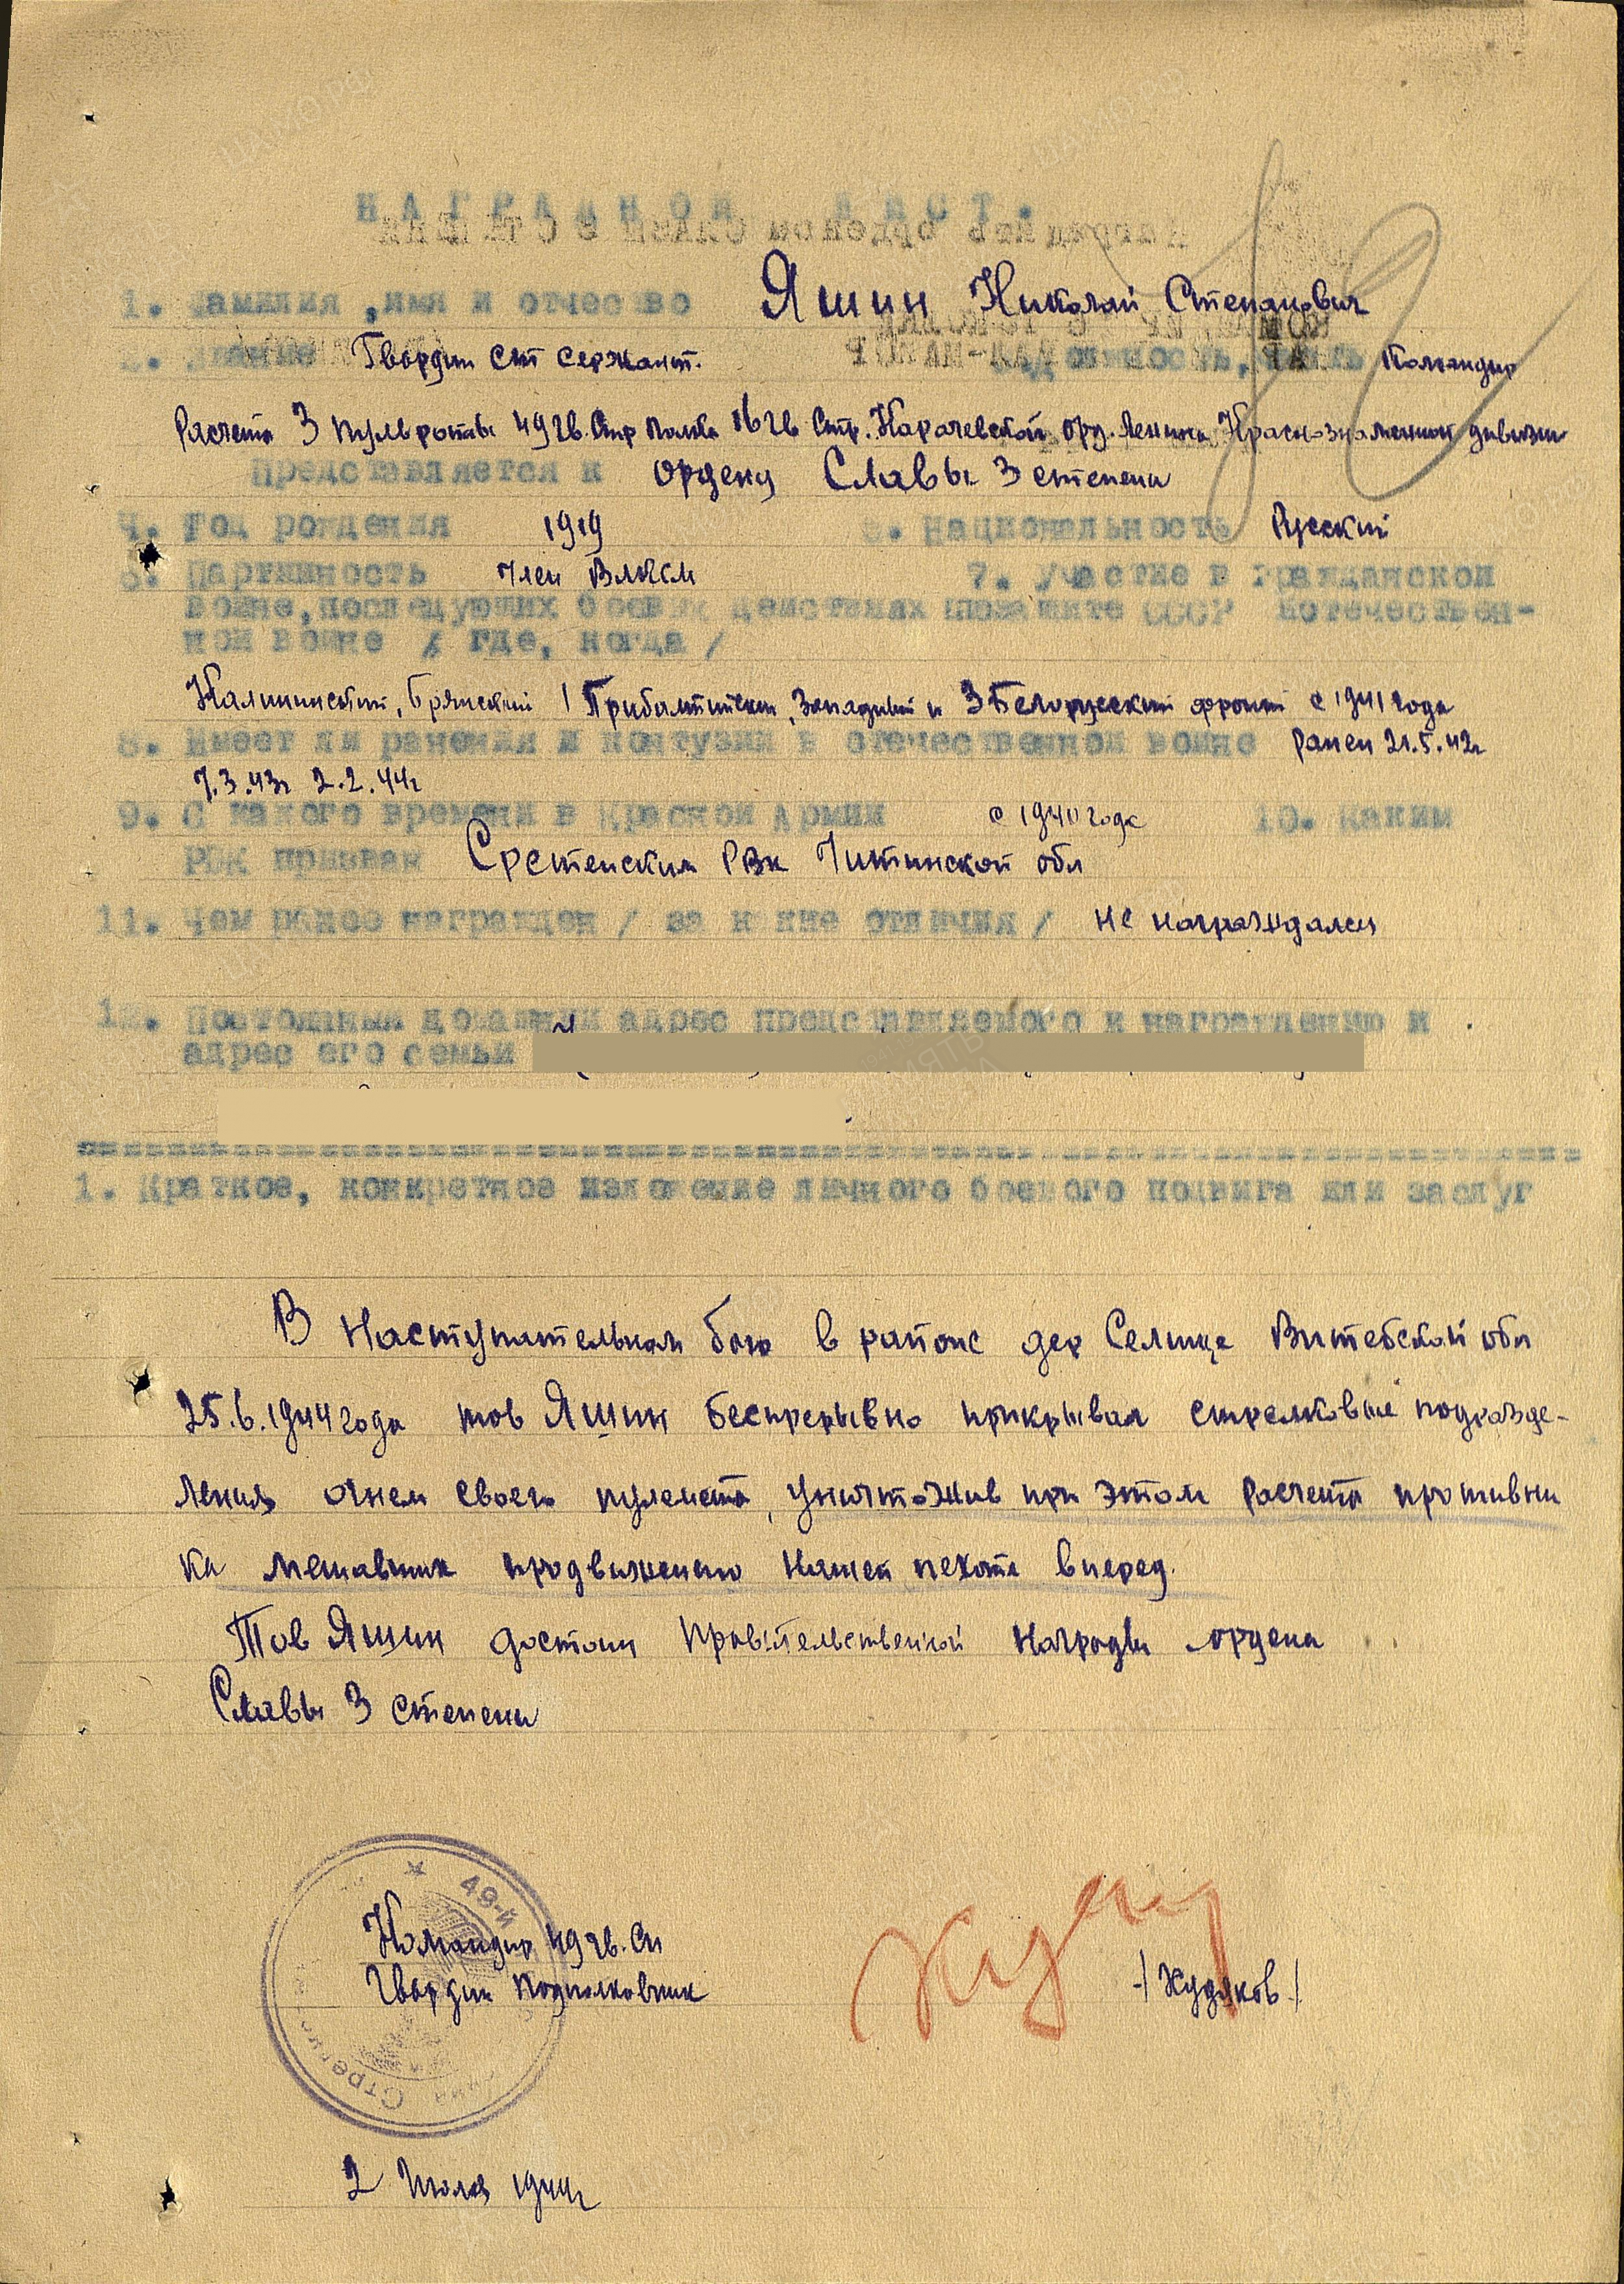 НАГРАДНОЙ ЛИСТ.
1. Фамилия, имя и отчество Яшин Николай Степанович
2. Звание Гвардии ст сержант. 3. Должность, часть Командир
расчета 3 пульроты 49 гв. Стр полка 16 гв Стр. Карачевской орд. Ленина Краснознаменной дивизии
Представляется к ордену Славы 3 степени
4. Год рождения 1919 5. Национальность Русский
6. Партийность член ВЛКСМ 7. Участие в гражданской
войне, последующих боевых действиях по защите СССР и отечествен-
ной войне / где, когда /
Калининский, Брянский 1 Прибалтийский, Западный и 3 Белорусский фронт с 1941 года
8. Имеет ли ранения и контузии в отечественной войне ранен 21.5.42г
7.3.43г 2.2.44г
9. С какого времени в Красной Армии с 1940 года 10. Каким
РВК призван Сретенским РВК Читинской обл
11. Чем ранее награжден / за какие отличия / не награждался
12. Постоянный домашний адрес представляемого к награждению и
адрес его семьи
1. Краткое, конкретное изложение личного боевого подвига или заслуг
В Наступательном бою в районе дер Селище Витебской обл
25.6.1944 года тов Яшин беспрерывно прикрывал стрелковые подразде-
ления огнем своего пулемета, уничтожив при этом расчета противни
ка мешавших продвижению нашей пехоте вперед.
Тов Яшин достоин Правительственной Награды ордена
Славы 3 степени
49-й
Командир 49 гв. Сп
Гвардии подполковник /Худяков/
2 Июля 1944г